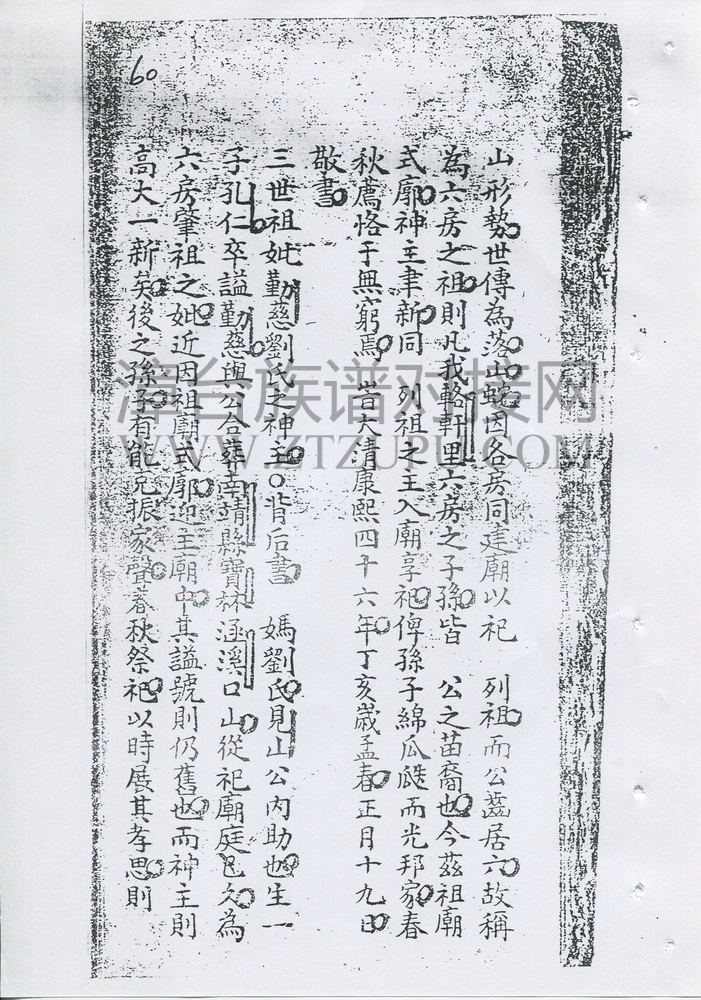 60
山形勢世傳為落山蛇因各房同建廟以祀 列祖而公齒居六故稱
為六房之祖則凡我輅軒里六房之子孫皆 公之苗裔也今茲祖廟
式廓神主聿新同 列祖之主入廟享祀俾孫子綿瓜瓞而光邦家春
秋薦恪于無窮焉 旹大清康熙四十六年丁亥歲孟春正月十九日
敬書
三世祖妣勤慈劉氏之神主○背后書 媽劉氏見山公內助也生一
子孔仁卒謚勤慈與公合葬幸靖縣寶林涵溪口山從祀廟庭已久為
六房肇祖之妣近因祖廟式廓迎主廟中其謚號則仍舊也而神主則
高大一新矣後之孫子有能克振家聲春秋祭祀以時展其孝思則
漳台族谱对接网
WWW.ZTZUPU.COM